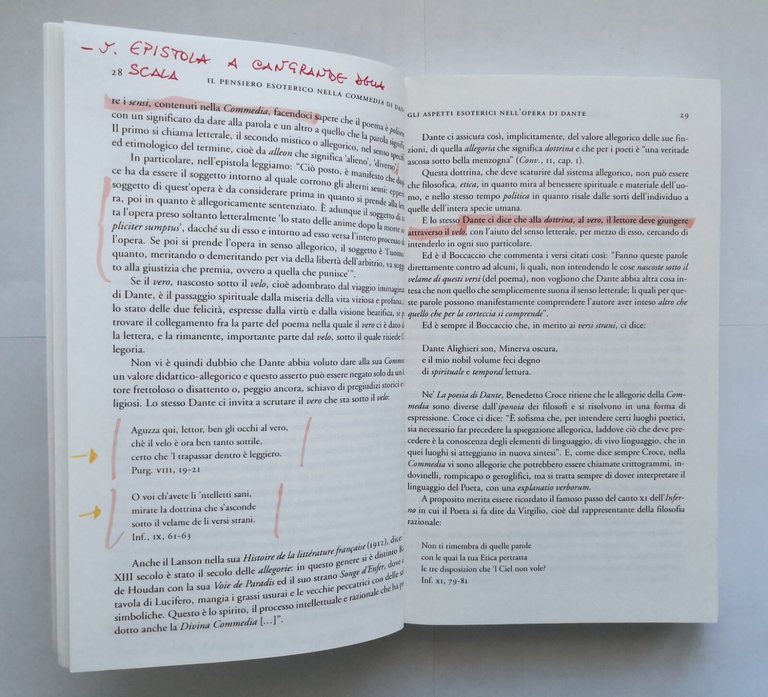 – V. EPISTOLA A CANGRANDE DELLA
SCALA
28 IL PENSIERO ESOTERICO NELLA COMMEDIA DI
re i sensi, contenuti nella Commedia, facendoci sapere che il poema è
con un significato da dare alla parola e un altro a quello che la parola
Il primo si chiama letterale, il secondo mistico o allegorico, nel senso
ed etimologico del termine, cioè da alleon che significa 'alieno', 'diverso'.
In particolare, nell'epistola leggiamo: "Ciò posto, è manifesto che
ce ha da essere il soggetto intorno al quale corrono gli alterni sensi:
soggetto di quest'opera è da considerare prima in quanto si prende alla
ra, poi in quanto è allegoricamente sentenziato. È adunque il soggetto di
ta l'opera preso soltanto letteralmente 'lo stato delle anime dopo la morte
pliciter sumptus', dacché su di esso e intorno ad esso verte l'intero processo
l'opera. Se poi si prende l'opera in senso allegorico, il soggetto è 'l'uomo
quanto, meritando o demeritando per via della libertà dell'arbitrio, va
to alla giustizia che premia, ovvero a quella che punisce'".
Se il vero, nascosto sotto il velo, cioè adombrato dal viaggio
di Dante, è il passaggio spirituale dalla miseria della vita viziosa e profana,
lo stato delle due felicità, espresse dalla virtù e dalla visione beatifica, si
trovare il collegamento fra la parte del poema nella quale il vero ci è dato
la lettera, e la rimanente, importante parte dal velo, sotto il quale risiede
legoria.
Non vi è quindi dubbio che Dante abbia voluto dare alla sua
un valore didattico-allegorico e questo asserto può essere negato solo da un
tore frettoloso o disattento o, peggio ancora, schiavo di pregiudizi storici
ligiosi. Lo stesso Dante ci invita a scrutare il vero che sta sotto il velo:
Aguzza qui, lettor, ben gli occhi al vero,
chè il velo è ora ben tanto sottile,
certo che 'l trapassar dentro è leggiero.
Purg. VIII, 19-21
O voi ch'avete li 'ntelletti sani,
mirate la dottrina che s'asconde
sotto il velame de li versi strani.
Inf., IX, 61-63
Anche il Lanson nella sua Histoire de la littérature française (1912), dice
XIII secolo è stato il secolo delle allegorie: in questo genere si è distinto
de Houdan con la sua Voie de Paradis ed il suo strano Songe d'Enfer, dove
tavola di Lucifero, mangia i grassi usurai e le vecchie peccatrici con delle
simboliche. Questo è lo spirito, il processo intellettuale e razionale che ha
dotto anche la Divina Commedia [...]".
GLI ASPETTI ESOTERICI NELL'OPERA DI DANTE 29
Dante ci assicura così, implicitamente, del valore allegorico delle sue fin-
zioni, di quella allegoria che significa dottrina e che per i poeti è "una veritade
ascosa sotto bella menzogna" (Conv., II, cap. 1).
Questa dottrina, che deve scaturire dal sistema allegorico, non può essere
che filosofica, etica, in quanto mira al benessere spirituale e materiale dell'uo-
mo, e nello stesso tempo politica in quanto risale dalle sorti dell'individuo a
quelle dell'intera specie umana.
E lo stesso Dante ci dice che alla dottrina, al vero, il lettore deve giungere
attraverso il velo, con l'aiuto del senso letterale, per mezzo di esso, cercando di
intenderlo in ogni suo particolare.
Ed è il Boccaccio che commenta i versi citati così: "Fanno queste parole
direttamente contro ad alcuni, li quali, non intendendo le cose nascoste sotto il
velame di questi versi (del poema), non vogliono che Dante abbia altra cosa in-
tesa che non quello che semplicemente suona il senso letterale; li quali per que-
ste parole possono manifestamente comprendere l'autore aver inteso altro che
quello che per la corteccia si comprende".
Ed è sempre il Boccaccio che, in merito ai versi strani, ci dice:
Dante Alighieri son, Minerva oscura,
e il mio nobil volume feci degno
di spirituale e temporal lettura.
Ne' La poesia di Dante, Benedetto Croce ritiene che le allegorie della Com-
media sono diverse dall'iponoia dei filosofi e si risolvono in una forma di
espressione. Croce ci dice: "È sofisma che, per intendere certi luoghi poetici,
sia necessario far precedere la spiegazione allegorica, laddove ciò che deve pre-
cedere è la conoscenza degli elementi di linguaggio, di vivo linguaggio, che in
quei luoghi si atteggiano in nuova sintesi". E, come dice sempre Croce, nella
Commedia vi sono allegorie che potrebbero essere chiamate crittogrammi, in-
dovinelli, rompicapo o geroglifici, ma si tratta sempre di dover interpretare il
linguaggio del Poeta, con una explanatio verborum.
A proposito merita essere ricordato il famoso passo del canto XI dell'Infer-
no in cui il Poeta si fa dire da Virgilio, cioè dal rappresentante della filosofia
razionale:
Non ti rimembra di quelle parole
con le quai la tua Etica pertratta
le tre disposizion che 'l Ciel non vole?
Inf. XI, 79-81